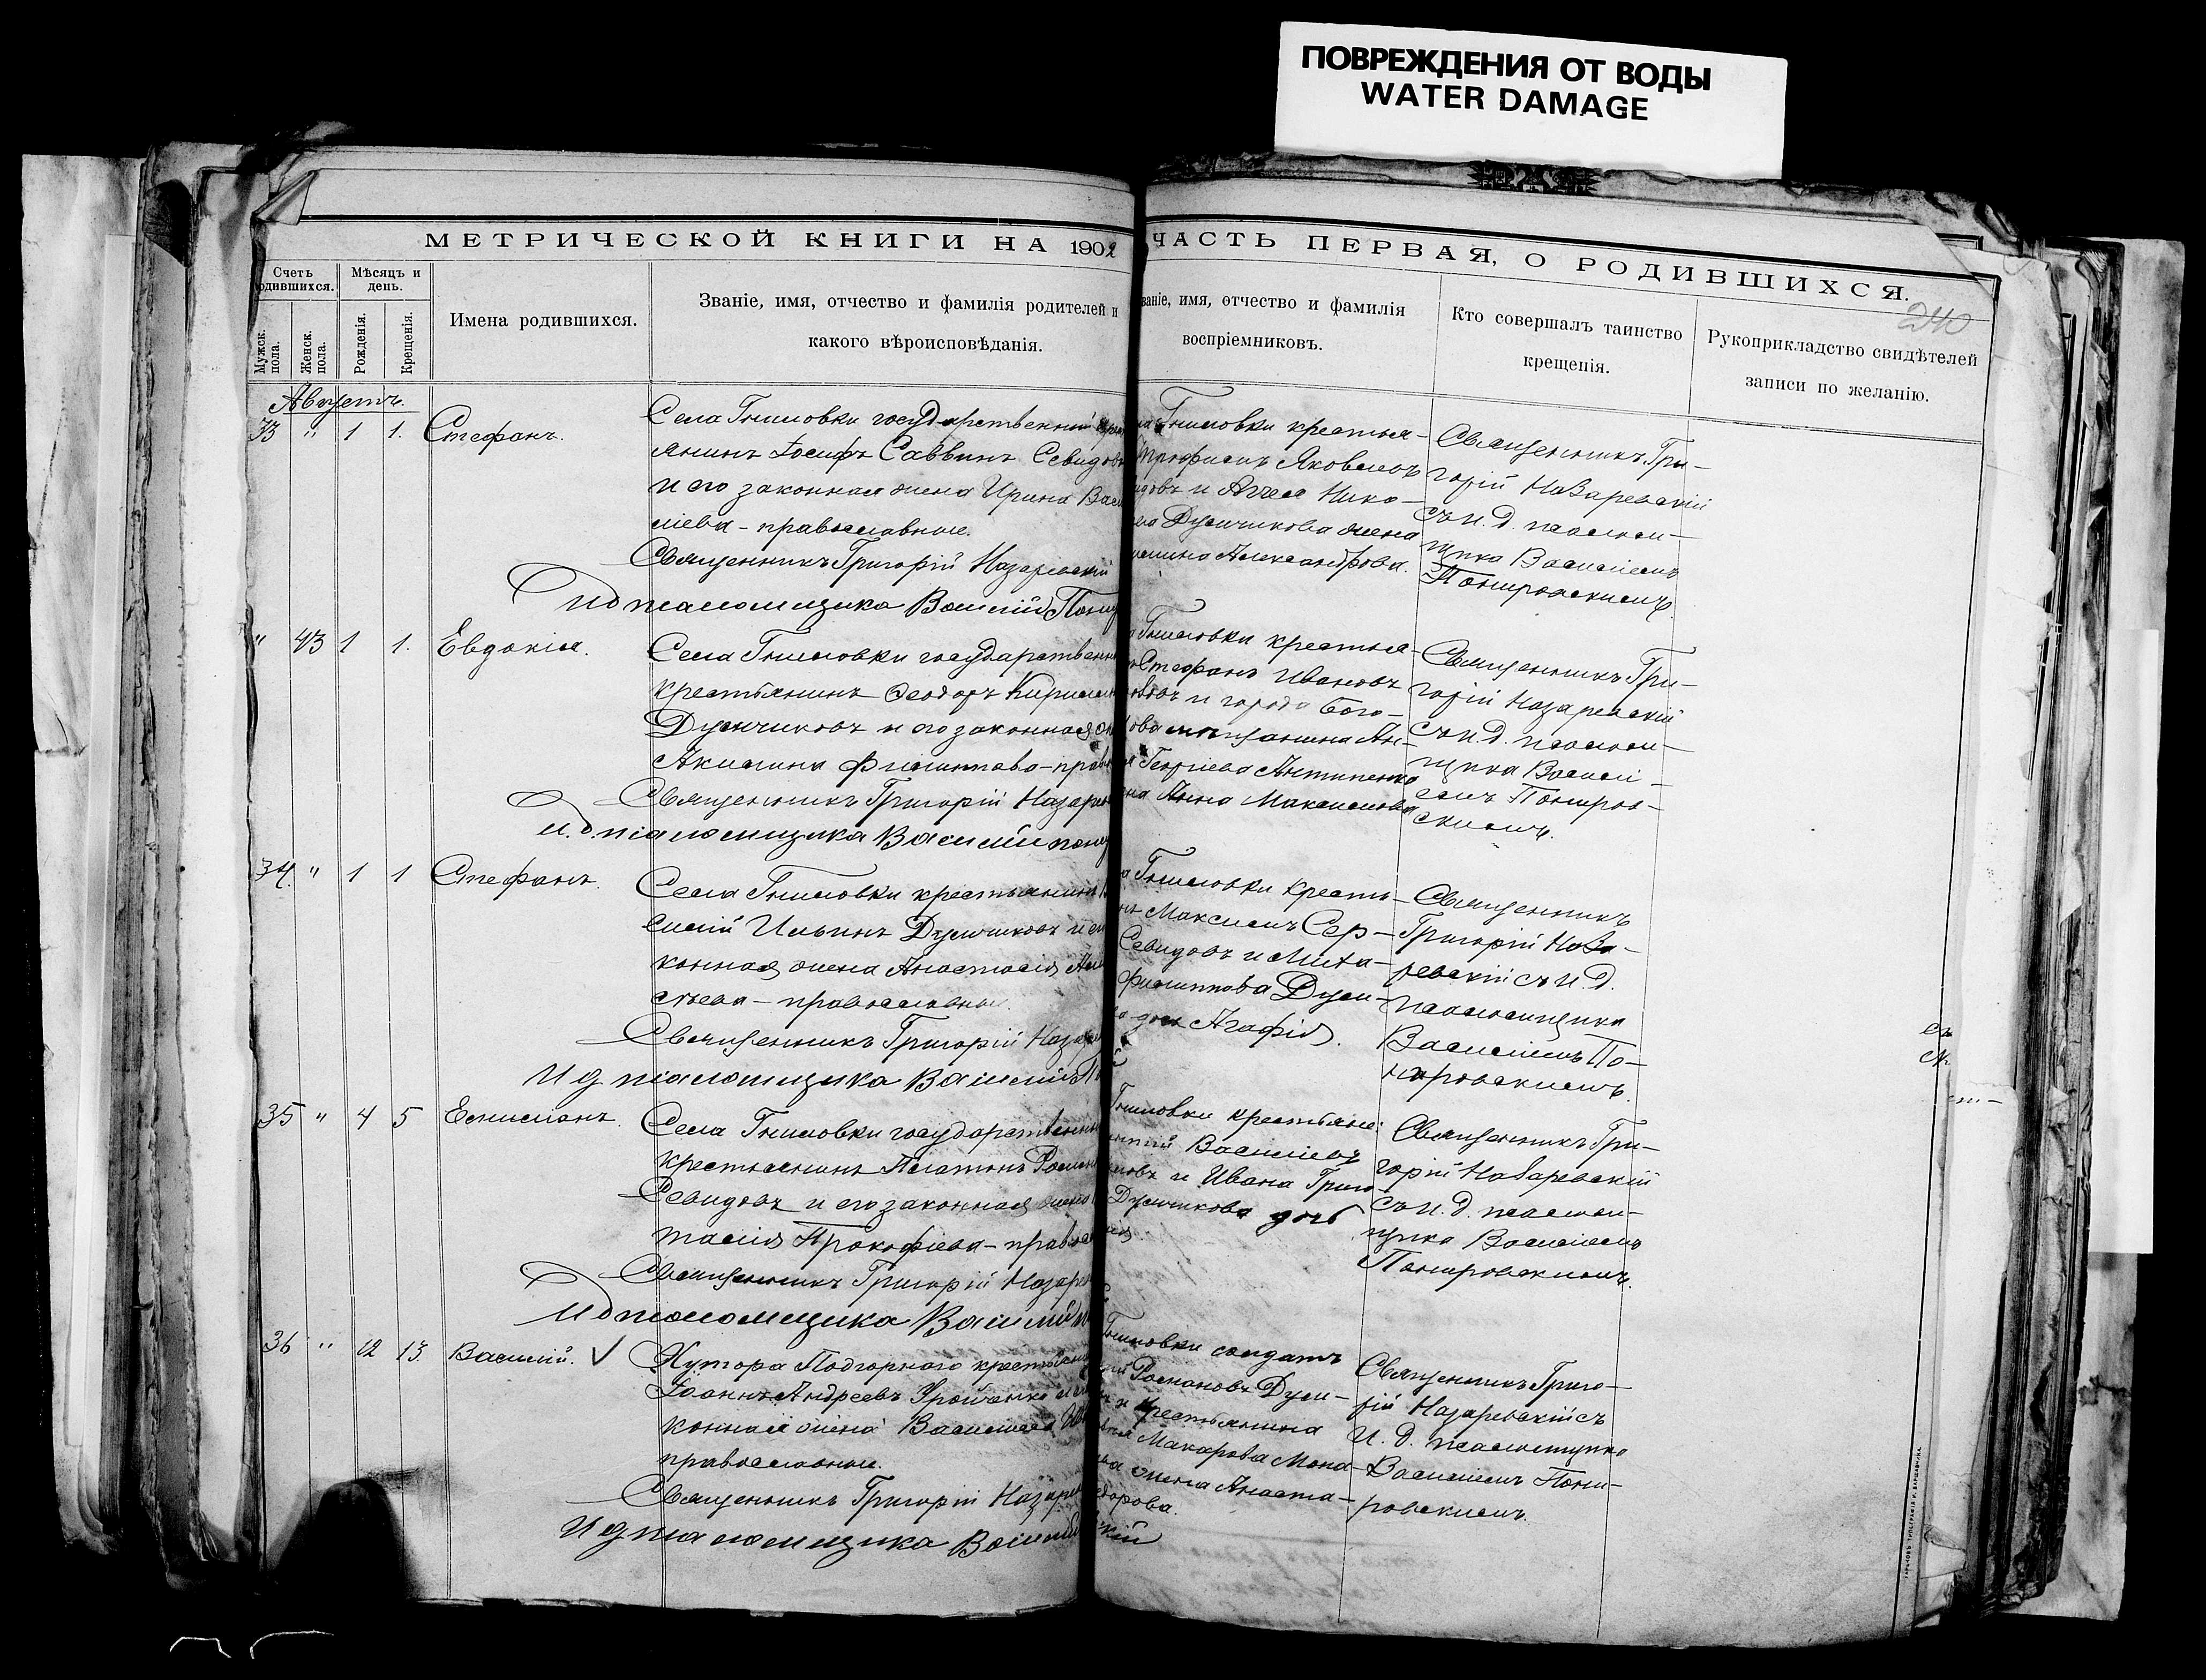 ПОВРЕЖДЕНИЯ ОТ ВОДЫ
WATER DAMAGE
МЕТРИЧЕСКОЙ КНИГИ НА 1902
ЧАСТЬ ПЕРВАЯ, О РОДИВШИХСЯ.
240
Счетъ
одившихся.
Мѣсяцъ и
день.
Мужск.
пола.
Женск.
пола.
Рожденія.
Крещенія.
Имена родившихся.
Званіе, имя, отчество и фамилія родителей и
какого вѣроисповѣданія.
званіе, имя, отчество и фамилія
воспріемниковъ.
Кто совершалъ таинство
крещенія.
Рукоприкладство свидѣтелей
записи по желанію.
Августъ.
33 " 1 1. Стефанъ.
Села Гниловки государственный
янинъ Іосифъ Саввинъ Севидовъ
и его законная жена Ирина Васи
ліева - православные.
Священникъ Григорій Назаревскій
И д псаломщика Василій
Гниловки крестья-
Трофимъ Яковлевъ
и Нико-
Думчикова жена
Александрова.
Священникъ Гри-
горій Назаревскій
съ и. д. псалом-
щика Василіемъ
Понировскимъ.
" 43 1 1. Евдокія.
Села Гниловки государственн
крестьянинъ Ѳеодоръ Кирилл
Думчиковъ и его законная
Акилина Филиппова - прав
Священникъ Григорій Назарев
и. д. псаломщика Василій
Гниловки крестья-
Стефанъ Ивановъ
и города Бого-
мѣщанина Ан-
Георгіева Антипенко
Анна Максимова
Священникъ Гри-
горій Назаревскій
съ и. д. псалом-
щика Васили-
емъ Пониров-
скимъ.
34. " 1 1 Стефанъ.
Села Гниловки крестьянинъ
силій Ильинъ Думчиковъ и
конная жена Анастасія
сѣева - православные.
Священникъ Григорій Назар
И д псаломщика Василій
Гниловки кресть-
Максимъ Сер-
Севидовъ и Миха-
Филиппова Думч-
дочь Агафія.
Священникъ
Григорій Наза-
ревскій съ и. д.
псаломщика
Василіемъ По-
нировскимъ.
35 " 4 5 Емиліанъ.
Села Гниловки государственн
крестьянинъ Платонъ Роман
Севидовъ и его законная жена
тасія Прокофіева - правосл
Священникъ Григорій Назарев
И д псаломщика Василій
Гниловки крестьяне:
Василіевъ
и Ивана Григо-
Думчикова дочь
Священникъ Гри-
горій Назаревскій
съ и. д. псалом-
щика Василіемъ
Понировскимъ.
36 " 12 13. Василій. V
Хутора Подгорного крестьянин
Іоаннъ Андреевъ
конная жена Василиса
православные.
Священникъ Григорій Назарев
И д псаломщика Василій
Гниловки солдатъ
Романовъ Думч-
и крестьянина
Макарова Мона-
жена Анаста-
дорова.
Священникъ Григо-
рій Назаревскій съ
и. д. псаломщика
Василіемъ Пони-
ровскимъ.